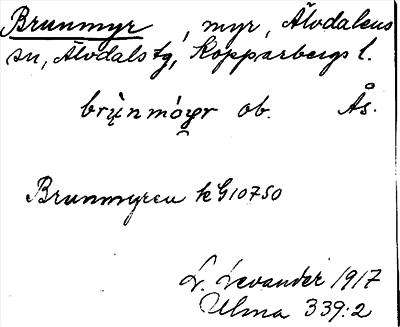 Brunmyr, myr, Älvdalens
sn, Älvdals tg, Kopparbergs l.
ob. Ås.
Brunmyren k G10750
L. Levander 1917
Ulma 339:2